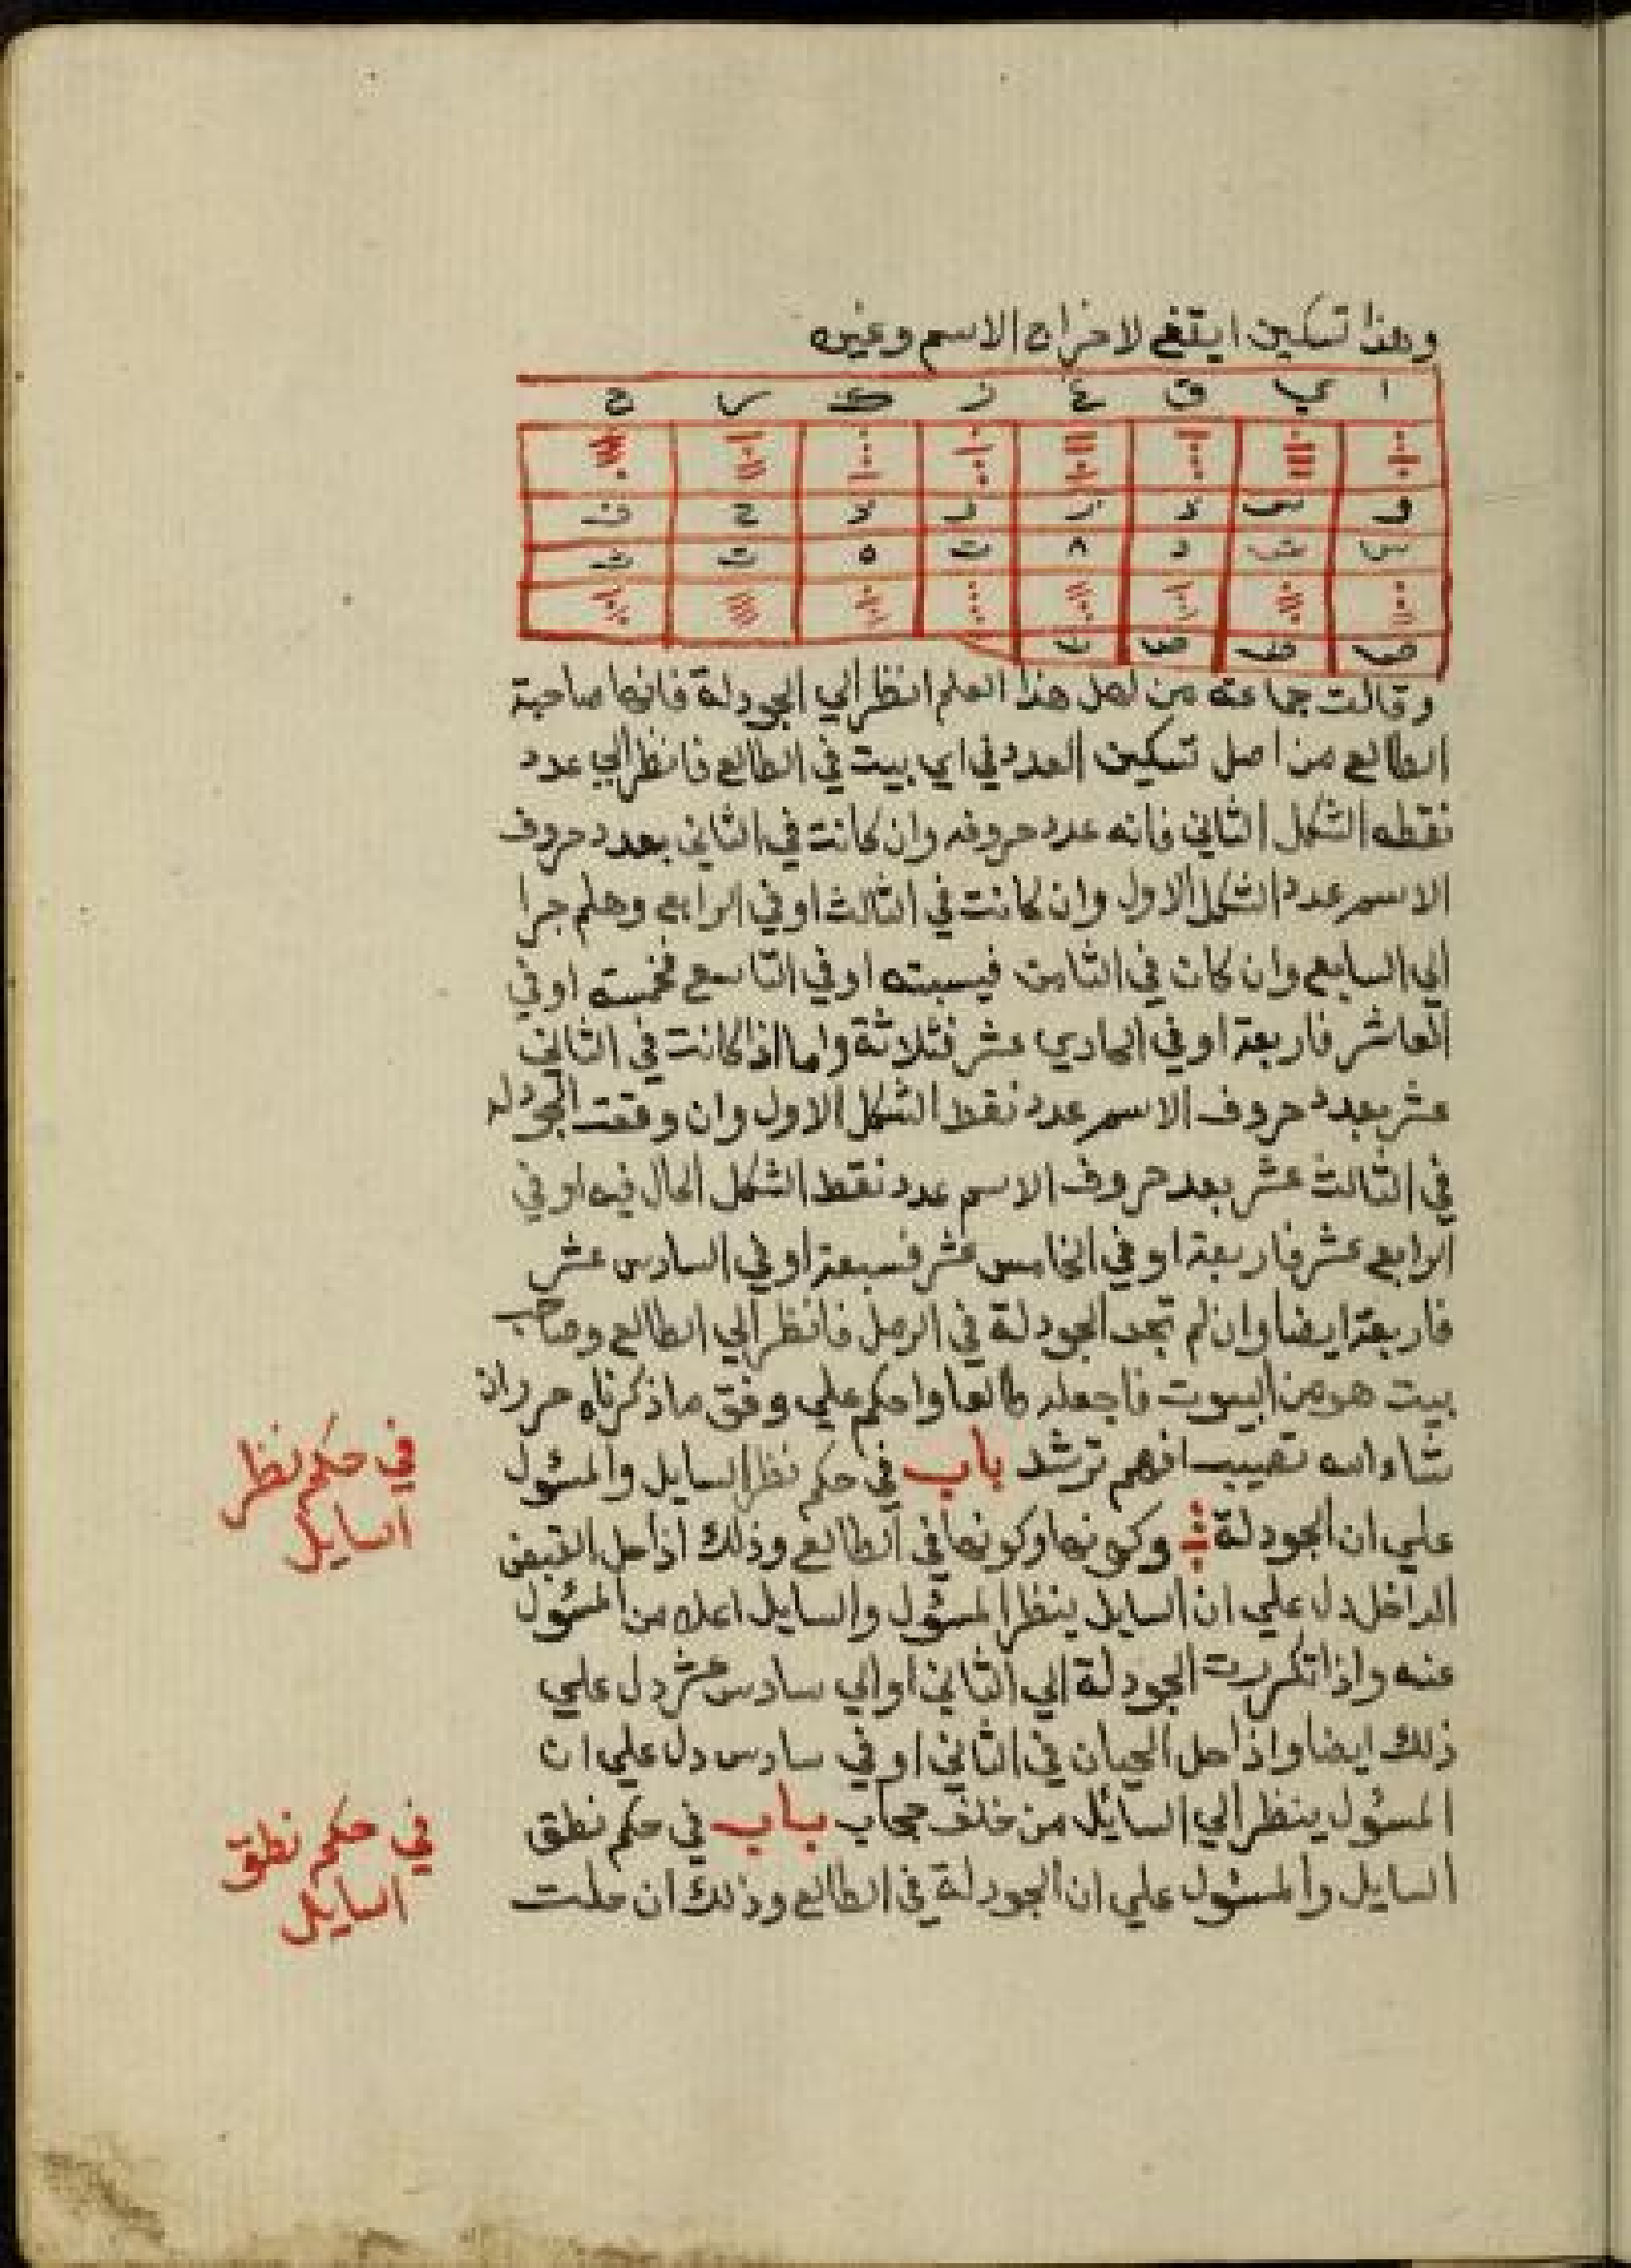 وهذا تسكين اينتفع لاخراج الاسم وغيره
ا ي ق غ ر ك س ح
وقالت جماعة من اهل هذا العلم انظر الي الجودلة فانها صاحبة
الطالع من اصل تسكين العدد في اي بيت في الطالع فانظر الي عدد
نقطه الشكل الثاني فانه عدد حروفه وان كانت في الثاني بعدد حروف
الاسم عدد الشكل الاول وان كانت في الثالث او في الرابع وهلم جرا
الي السابع وان كان في الثامن فيسبته او في التاسع فخمسته او في
العاشر فاربعة او في الحادي عشر فثلاثة واما اذا كانت في الثاني
عشر بعدد حروف الاسم عدد نقط الشكل الاول وان وقعت الجودلة
في الثالث عشر بعد حروف الاسم عدد نقط الشكل الحال فيه او في
الرابع عشر فاربعة او في الخامس عشر فسبعة او في السادس عشر
فاربعة ايضا وان لم تجد الجودلة في الرمل فانظر الي الطالع
بيت هو من البيوت فاجعله طالعا واحكم علي وفق ما ذكرناه حرر وان
شاء الله تصيب افهم ترشد باب في حكم نظر السايل والمسئول
علي ان الجودلة وكونها وكونها في الطالع وذلك اذا حل القبض
الداخل دل علي ان السايل ينظر المسئول والسايل اعلا من المسئول
عنه واذا تكررت الجودلة الي الثاني او الي سادس عشر دل علي
ذلك ايضا واذا حل الحيان في الثاني او في سادس دل علي ان
المسئول ينظر الي السائل من خلف حجاب باب في حكم نطق
السايل والمسئول علي ان الجودلة في الطالع وذلك ان حلت
في حكم نظر
السايل
في حكم نطق
السايل